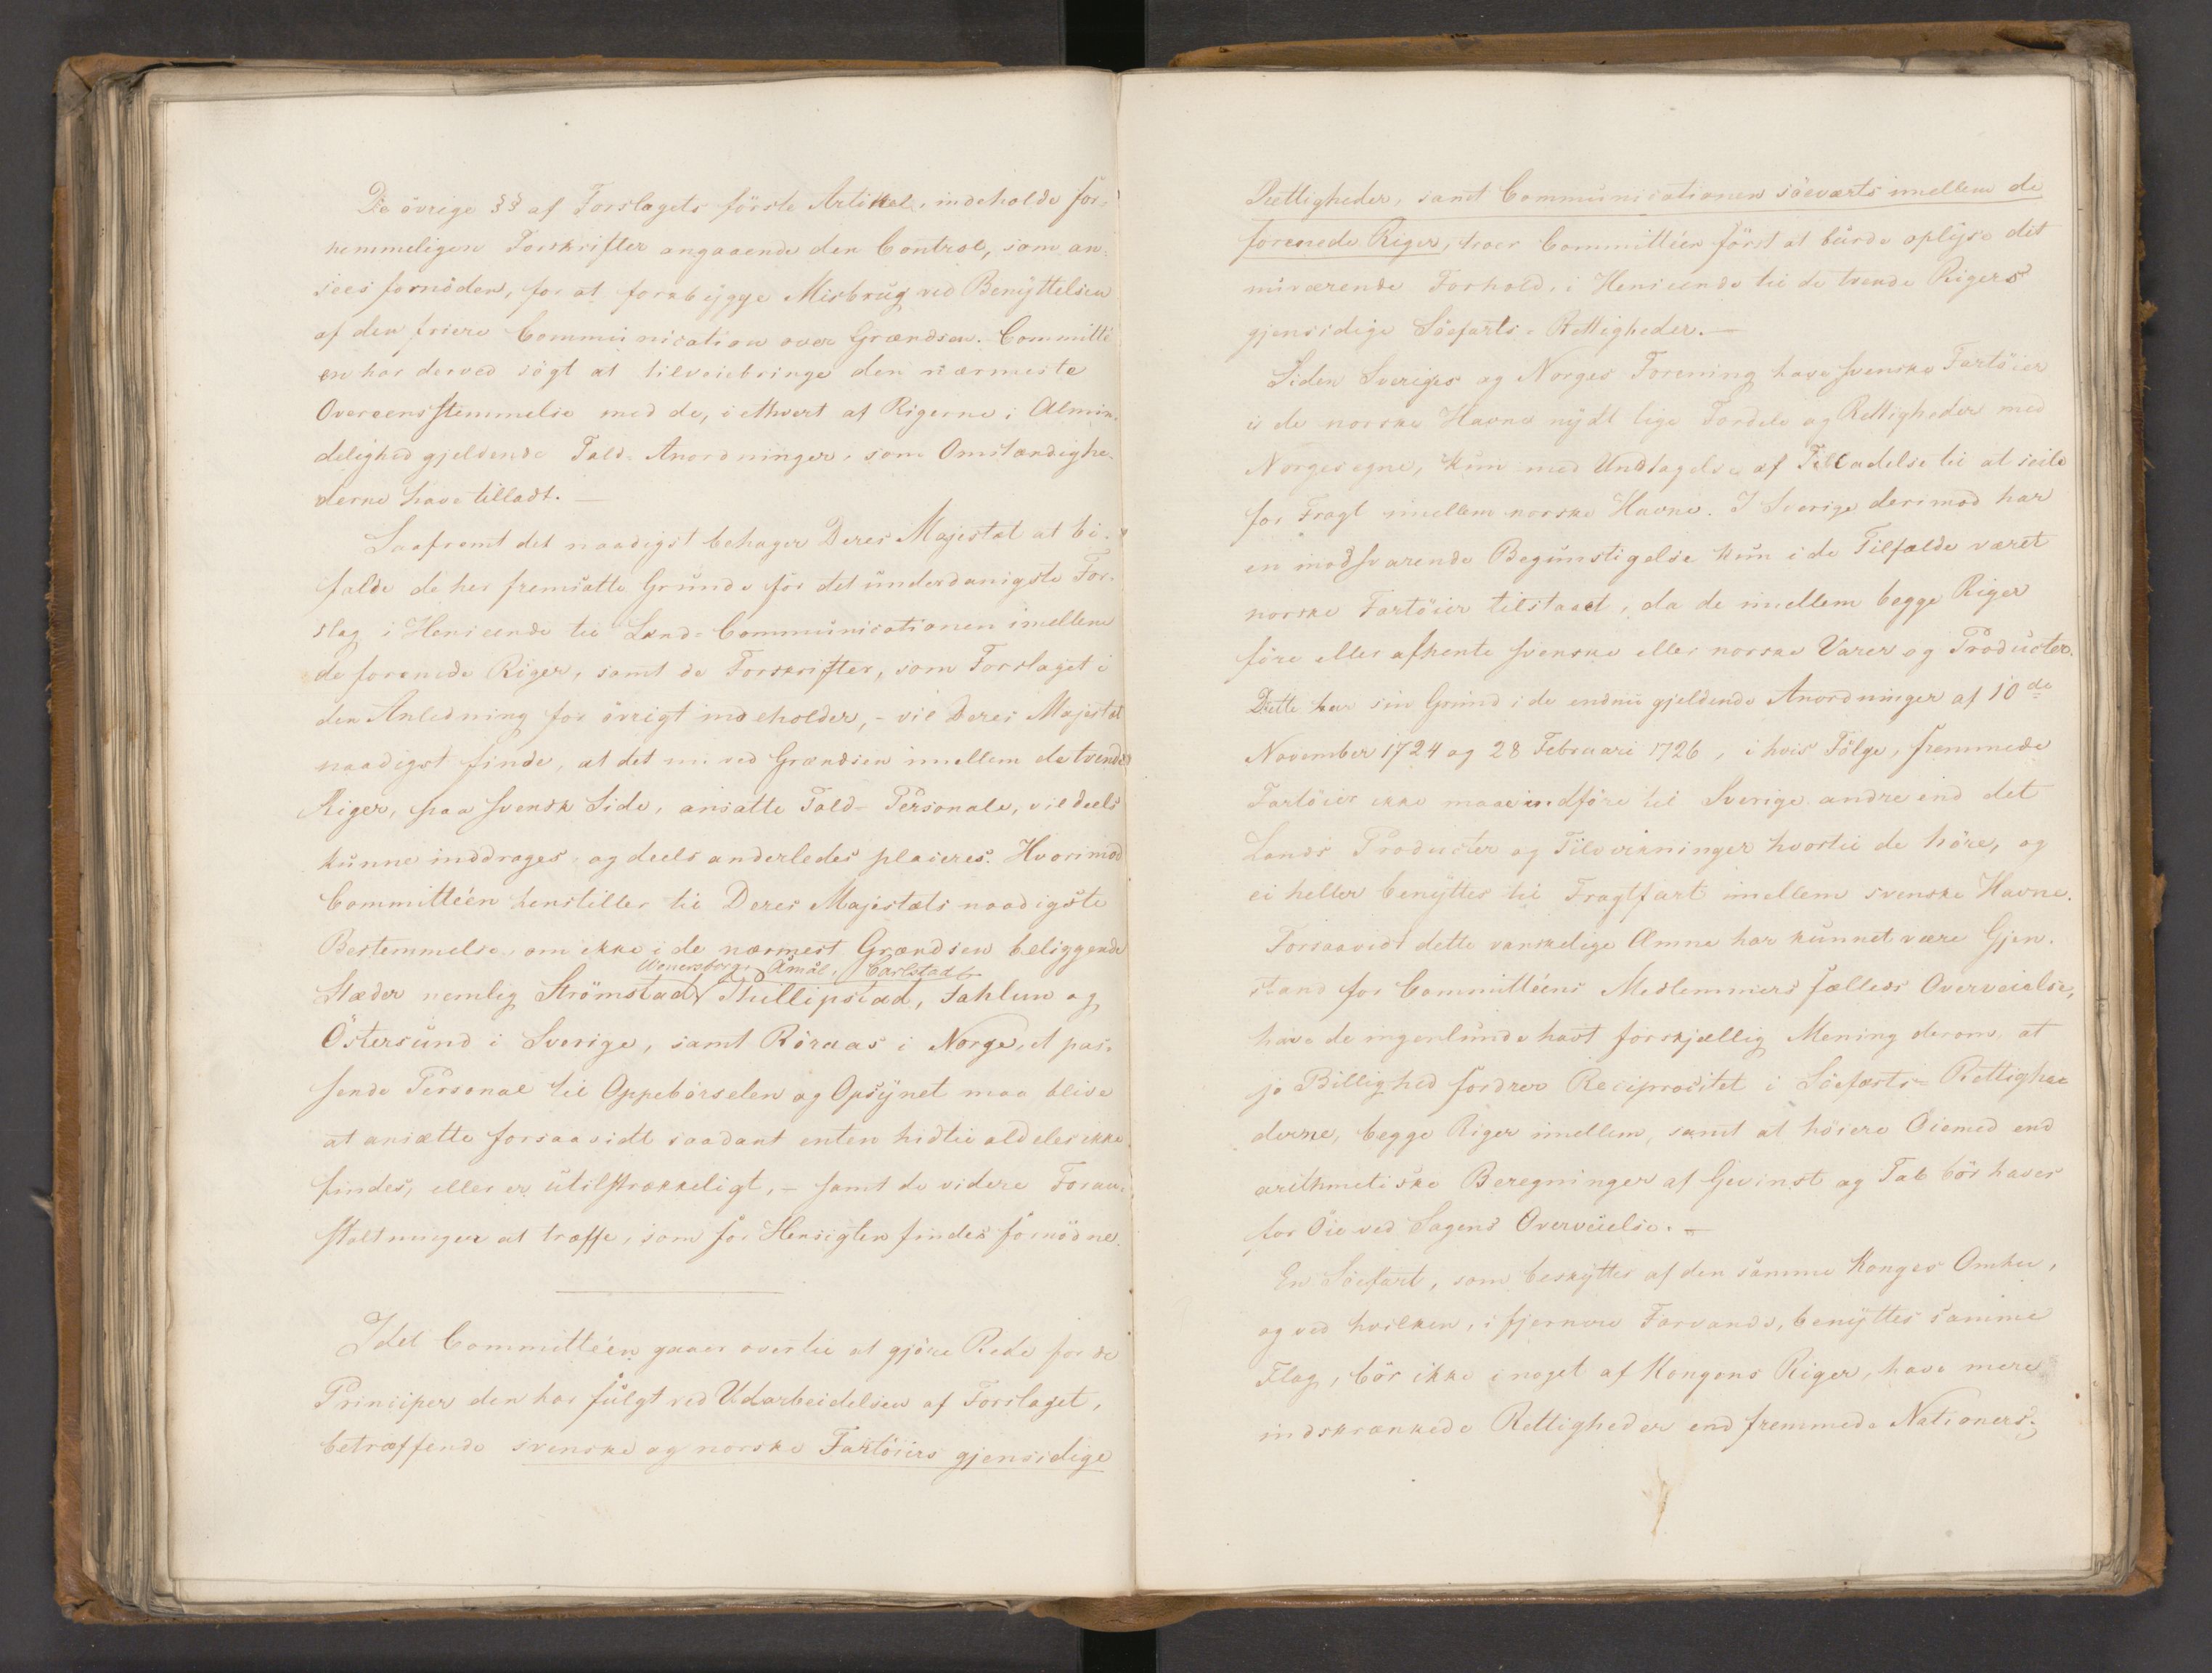 De övrige §§ af Forslagets förste Artikel, indeholde for-
nemmeligen Forskrifter angaaende den Control, som an-
sees fornöden, for at forebygge Misbrug ved Benyttelsen
af den friere Communication over Grændsen. Committé
en har derved sögt at tilveiebringe den nærmeste
Overeensstemmelse med de, i ethvert af Rigerne i Almin-
delighed gjeldende Told-Anordninger, som Omstændighe-
derne have tilladt. —
Saafremt det naadigst behager Deres Majestæt at bi-
falde de her fremsatte Grunde for det underdanigste For-
slag i Henseende til Land-Communicationen imellem
de forenede Riger, samt de Forskrifter, som Forslaget i
den Anledning for övrigt indeholder, - vil Deres Majestæt
naadigst finde, at det nu ved Grændsen imellem de tvende
Riger, paa svensk Side, ansatte Told-Personale, vil deels
kunne inddrages og deels anderledes placeres. Hvorimod
Committéen henstiller til Deres Majestæts naadigste
Bestemmelse, om ikke i de nærmest Grændsen beliggende
Wenersborg, Åmål, Carlstad
Stæder nemlig Strömstad, Phillipstad, Fahlun og
Östersund i Sverige, samt Röraas i Norge, et pas-
sende Personal til Oppebörselen og Opsynet maa blive
at ansætte forsaavidt saadant enten hidtil aldeles ikke
findes, eller er utilstrækkeligt, - samt de videre Foran-
staltninger at træffe, som for Hensigten findes fornödne.
Idet Committéen gaaer over til at gjöre Rede for de
Principer den har fulgt ved Udarbeidelsen af Forslaget,
betræffende svenske og norske Fartöiers gjensidige
Rettigheder, samt Communicationen söeværts imellem de
forenede Riger, troer Committéen först at burde oplyse det
nuværende Forhold, i Henseende til de tvende Rigers
gjensidige Söefarts-Rettigheder. —
Siden Sveriges og Norges Forening have svenske Fartöier
i de norske Havne nydt lige Fordele og Rettigheder med
Norges egne, kun med Undtagelse af Tilladelse til at seile
for Fragt imellem norske Havne. I Sverige derimod har
en modsvarende Begunstigelse kun i de Tilfælde været
norske Fartöier tilstaaet, da de imellem begge Riger
före eller afhente svenske eller norske Varer og Producter.
Dette har sin Grund i de endnu gjeldende Anordninger af 10de
November 1724 og 28 Februari 1726, i hvis Fölge, fremmede
Fartöier ikke maae indföre til Sverige andre end det
Lands Producter og Tilvirkninger hvortil de höre, og
ei heller benyttes til Fragtfart imellem svenske Havne.
Forsaavidt dette vanskelige Æmne har kunnet være Gjen-
stand for Committéens Medlemmers fælleds Overveielse,
have de ingenlunde havt forskjællig Mening derom at
jo Billighed fordrer Reciprocitet i Söefarts-Rettighe
derne, begge Riger imellem, samt at höiere Öiemed end
arithmetiske Beregninger af Gevinst og Tab bör haves
for Öie ved Sagens Overveielse. —
En Söefart, som beskyttes af den samme Konges Omhu,
og ved hvilken, i fjernere Farvande, benyttes samme
Flag, bör ikke i noget af Kongens Riger, have mere
indskrænkede Rettigheder end fremmede Nationers;